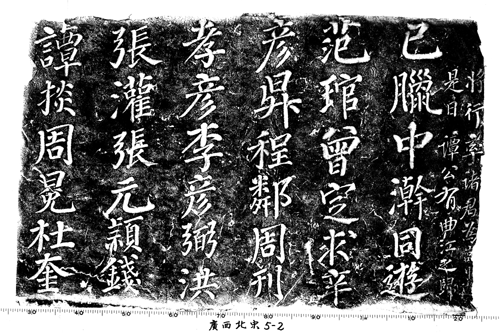 譚掞周晃杜奎
張灌張元穎錢
孝彥李彥弼洪
彥昇程鄰周刊
范琯曾定求辛
巳臘中澣同遊
是日譚公有曲江之歸
將行率諸君為
廣西北京5-2